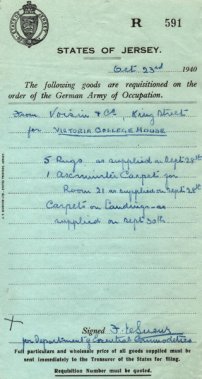 R 591
STATES OF JERSEY.
Oct 23rd 1940
The following goods are requisitioned on the
order of the German Army of Occupation.
From Voisin & Co, King Street
for VICTORIA COLLEGE HOUSE
5 Rugs as supplied on Sept 28th
1 Axminster Carpet for
Room 21 as supplied on Sept 28th
Carpets on Landings as
supplied on Sept 30th
Signed
for Department of Essential Commodities
Full particulars and wholesale price of all goods supplied must be
sent immediately to the Treasurer of the States for filing.
Requisition Number must be quoted.